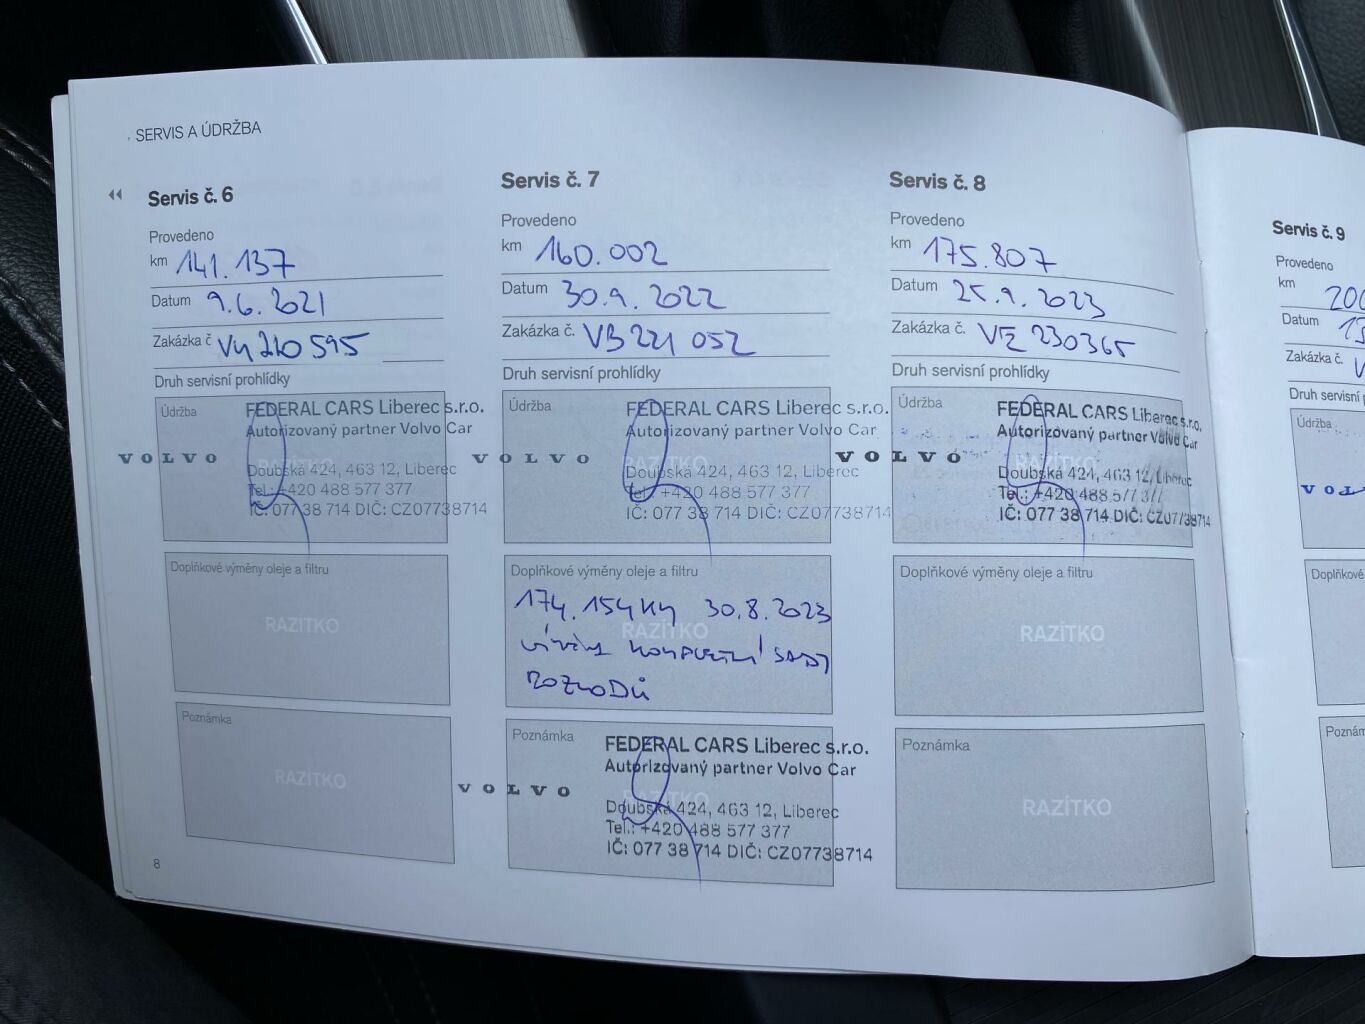 SERVIS A ÚDRŽBA
Servis č. 6
Provedeno
km 141.137
Datum 9.6.2021
Zakázka č V4210595
Druh servisní prohlídky
Údržba
FEDERAL CARS Liberec s.r.o.
Autorizovaný partner Volvo Car
VOLVO
Doubská 424, 463 12, Liberec
Tel.: +420 488 577 377
IČ: 077 38 714 DIČ: CZ07738714
Doplňkové výměny oleje a filtru
RAZÍTKO
Poznámka
RAZÍTKO
8
Servis č. 7
Provedeno
km 160.002
Datum 30.9.2022
Zakázka č. VB221052
Druh servisní prohlídky
Údržba
FEDERAL CARS Liberec s.r.o.
Autorizovaný partner Volvo Car
VOLVO
Doubská 424, 463 12, Liberec
Tel.: +420 488 577 377
IČ: 077 38 714 DIČ: CZ07738714
Doplňkové výměny oleje a filtru
174.154 KM 30.8.2023
RAZÍTKO
výměna kompletní sady
rozvodů
Poznámka
FEDERAL CARS Liberec s.r.o.
Autorizovaný partner Volvo Car
VOLVO
Doubská 424, 463 12, Liberec
Tel.: +420 488 577 377
IČ: 077 38 714 DIČ: CZ07738714
Servis č. 8
Provedeno
km 175.807
Datum 25.9.2023
Zakázka č. VZ230365
Druh servisní prohlídky
Údržba
FEDERAL CARS Liberec s.r.o.
Autorizovaný partner Volvo Car
VOLVO
Doubská 424, 463 12, Liberec
Tel.: +420 488 577 377
IČ: 077 38 714 DIČ: CZ07738714
Doplňkové výměny oleje a filtru
RAZÍTKO
Poznámka
RAZÍTKO
Servis č. 9
Provedeno
km 200
Datum
Zakázka č.
Druh servisní
Údržba
Doplňkové